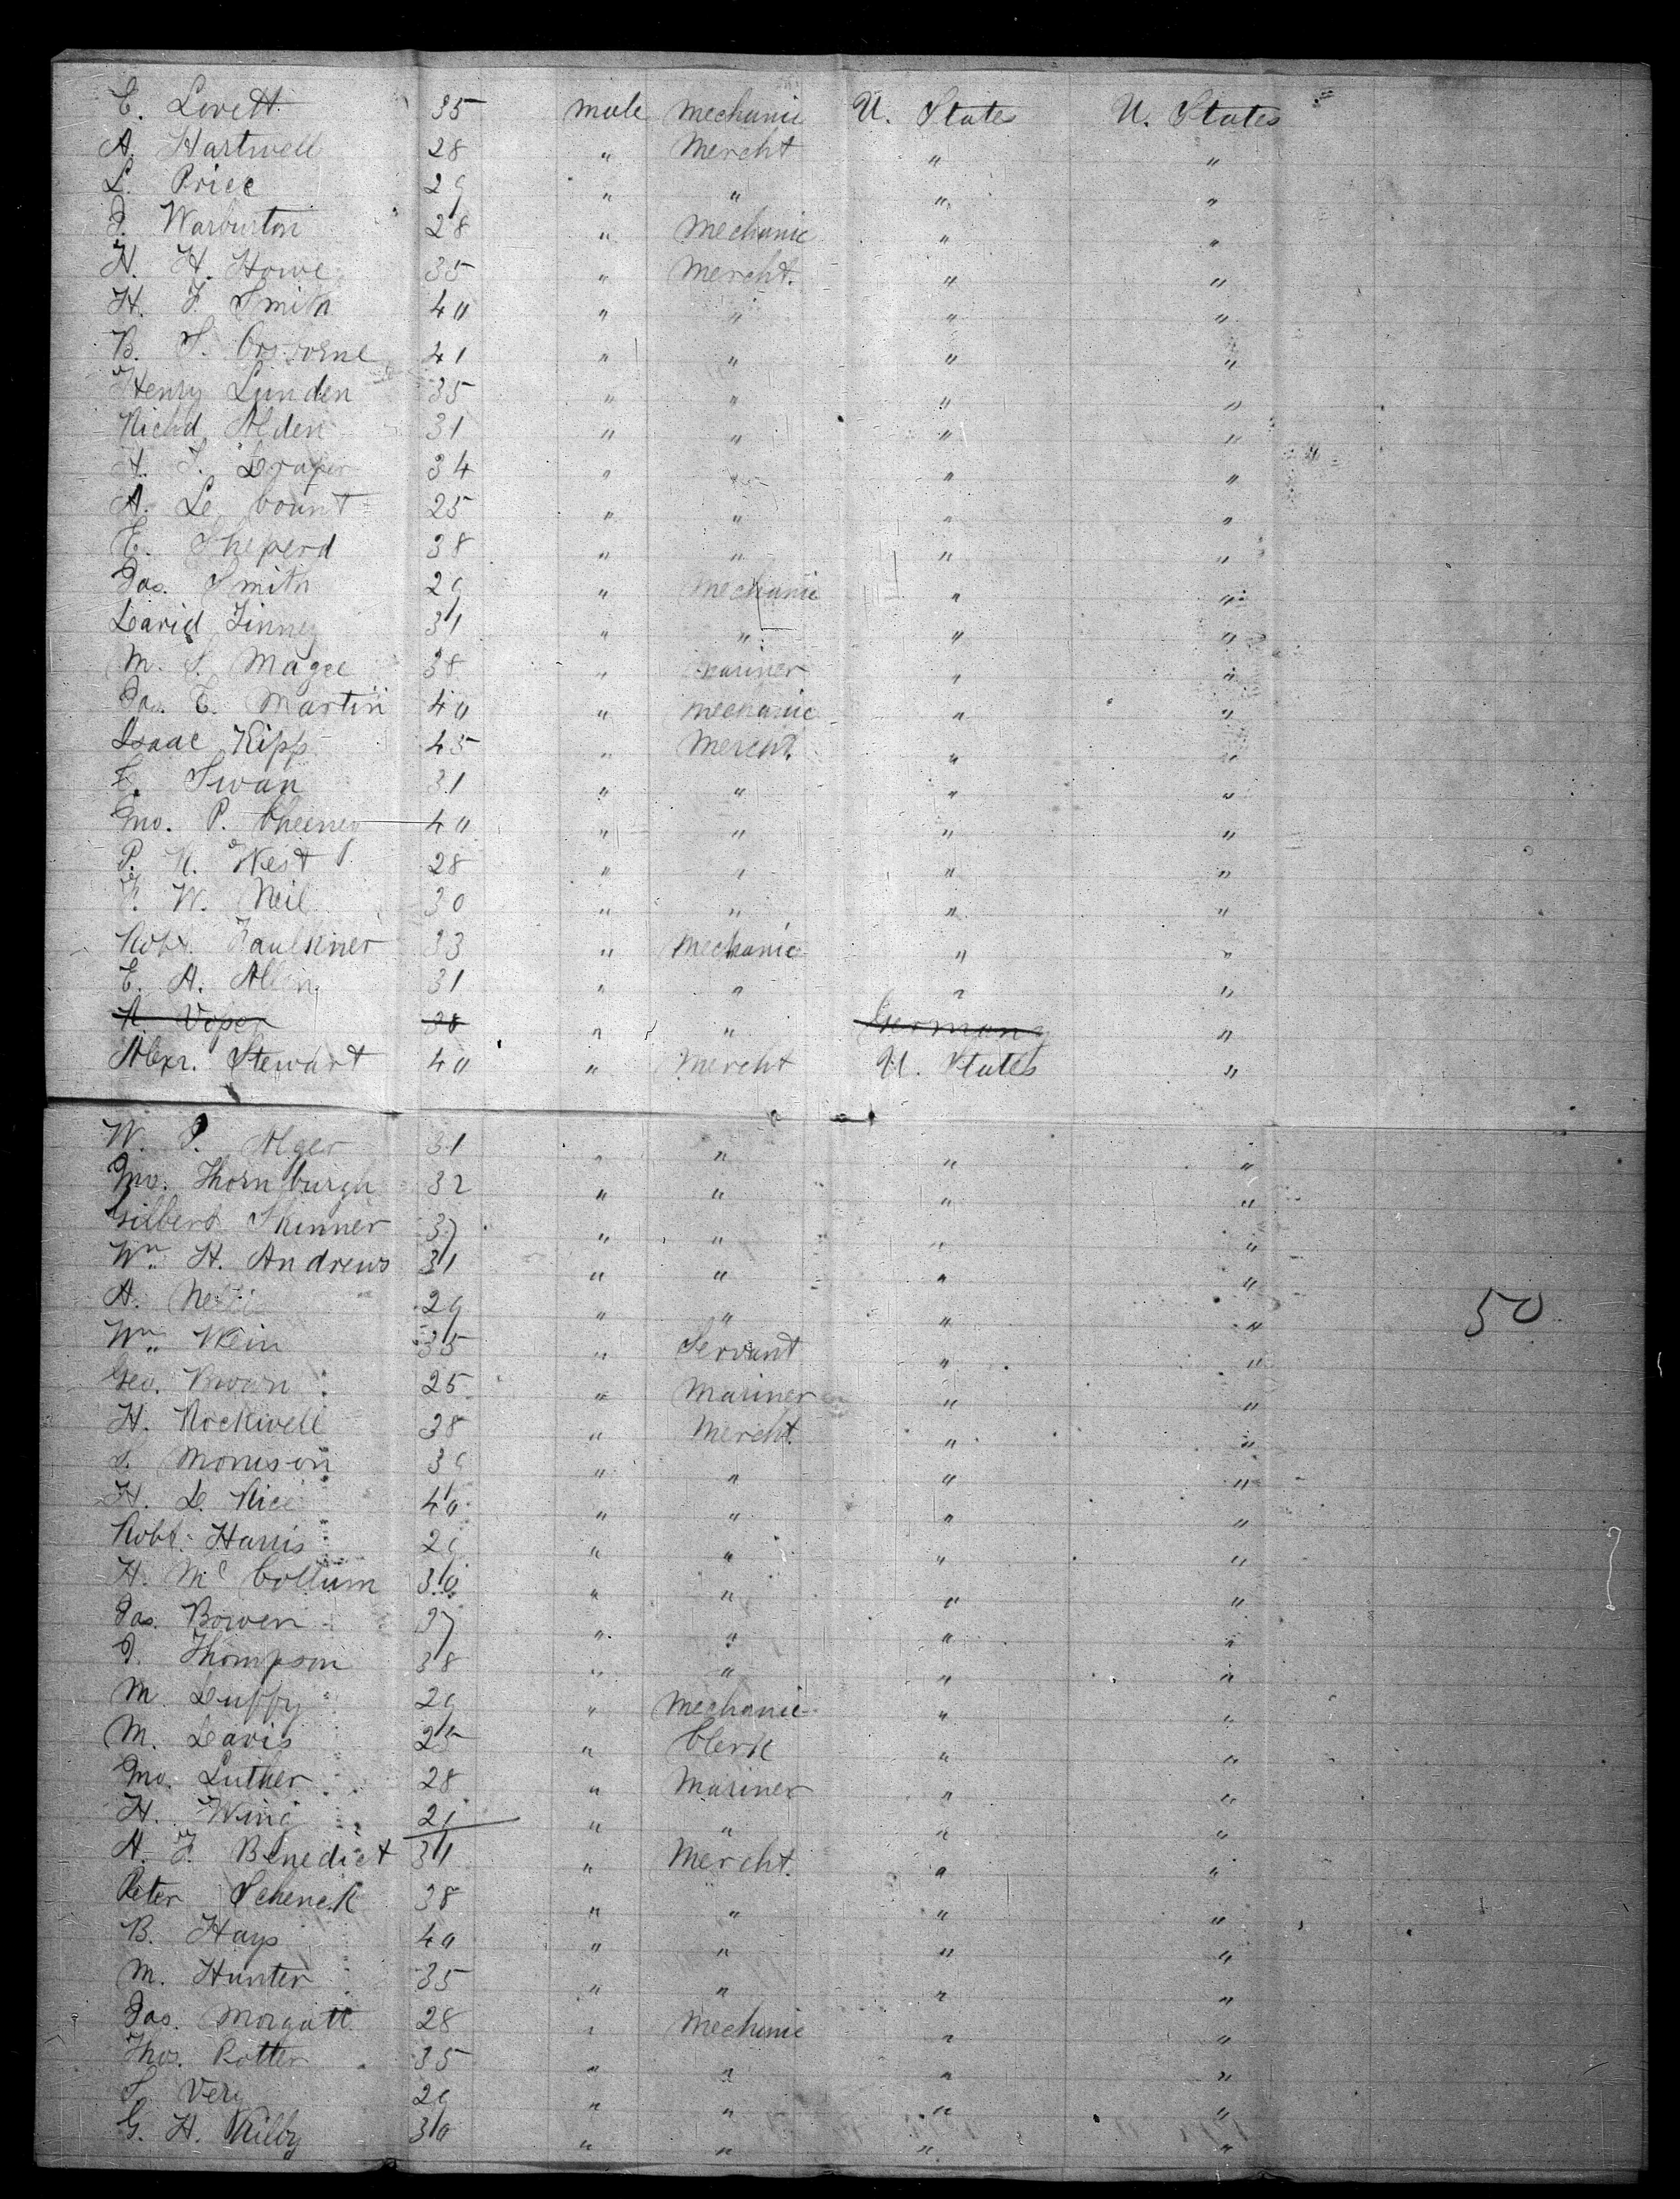 E. Lovett 35 male Mechanic U. States U. States
A. Hartwell 28 " Mercht " "
L. Price 29 " " " "
J. Warburton 28 " Mechanic " "
N. H. Howe 35 " Mercht. " "
H. F. Smith 40 " " " "
B. S. Osborne 41 " " " "
Henry Linden 35 " " " "
Richd Alden 31 " " " "
A. S. Draper 34 " " " "
A. Le Count 25 " " " "
E. Sheperd 38 " " " "
Jas. Smith 29 " Mechanic " "
David Finney 31 " " " "
M. S. Magee 38 " Mariner " "
Jas. E. Martin 40 " Mechanic " "
Isaac Kipp 45 " Mercht. " "
E. Swan 31 " " " "
Jno. P. Cheeney 40 " " " "
P. N. West 28 " " " "
F. W. Neil 30 " " " "
Robt. Faulkner 33 " Mechanic " "
E. A. Allen 31 " " " "
A. Voper 38 " " Germany "
Alexr. Stewart 40 " Mercht U. States "
W. P. Alger 31 " " " "
Jno. Thornburgh 32 " " " "
Gilbert Skinner 37 " " " "
Wm. H. Andrews 31 " " " "
A. 29 " " " " 50
Wm. Wein 35 " Servant " "
Geo. Brown 25 " Mariner " "
H. Rockwell 38 " Mercht. " "
S. Morrison 39 " " " "
H. D. Rice 40 " " " "
Robt. Harris 29 " " " "
H. Mc Collum 30 " " " "
Jas. Bowen 37 " " " "
J. Thompson 38 " " " "
M. Duffy 29 " Mechanic " "
M. Davis 25 " Clerk " "
Jno. Luther 28 " Mariner " "
H. Wing 21 " " " "
A. F. Benedict 31 " Mercht. " "
Peter Schenck 38 " " " "
B. Hays 40 " " " "
M. Hunter 35 " " " "
Jas. Morgatt 28 " Mechanic " "
Thos. Potter 35 " " " "
S. Very 29 " " " "
G. H. Kilby 30 " " " "